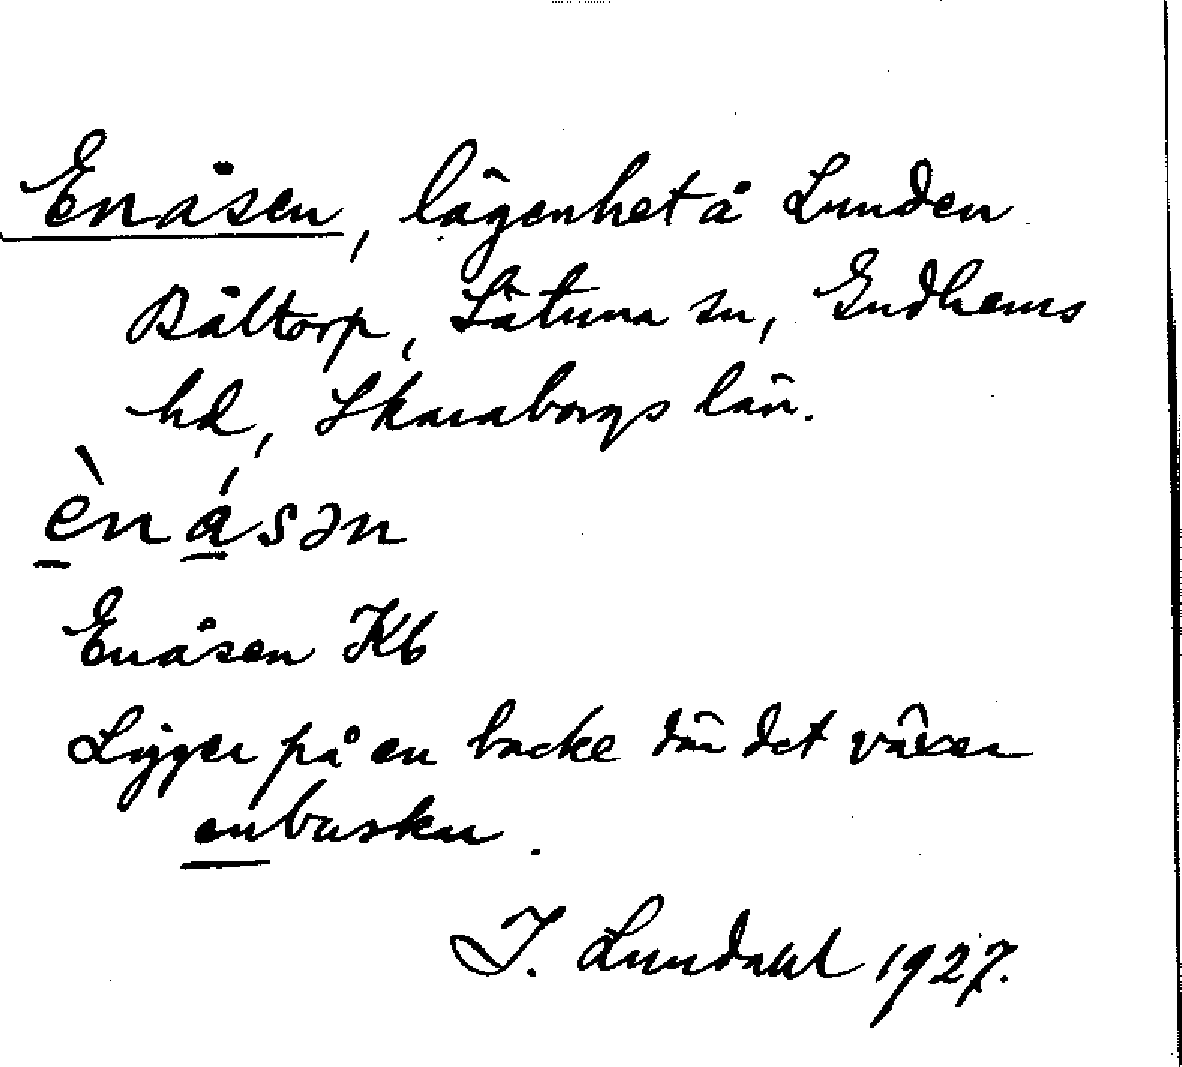 Enåsen, lägenhet å Lunden
Bältorp, Låtuna sn, Gudhems
hd, Skaraborgs län.
ènåsən
Enåsen Kb
Ligger på en backe där det växer
enbuskar.
I. Lundahl 1927.